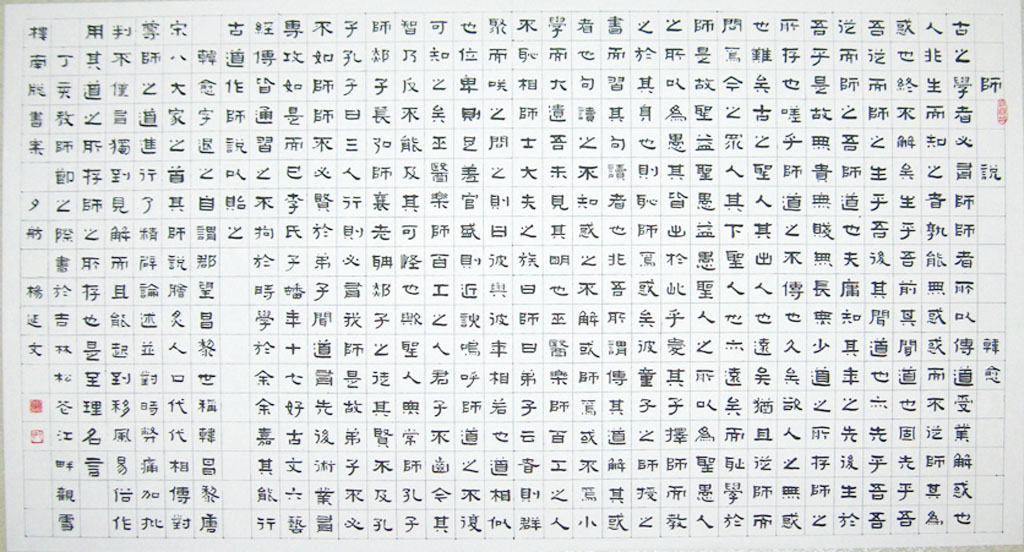 師說 韓愈
古之學者必有師師者所以傳道受業解惑也
人非生而知之者孰能無惑惑而不從師其為
惑也終不解矣生乎吾前其聞道也固先乎吾
吾從而師之生乎吾後其聞道也亦先乎吾吾
從而師之吾師道也夫庸知其年之先後生於
吾乎是故無貴無賤無長無少道之所存師之
所存也嗟乎師道之不傳也久矣欲人之無惑
也難矣古之聖人其出人也遠矣猶且從師而
問焉今之眾人其下聖人也亦遠矣而恥學於
師是故聖益聖愚益愚聖人之所以為聖愚人
之所以為愚其皆出於此乎愛其子擇師而教
之於其身也則恥師焉惑矣彼童子之師授之
書而習其句讀者也非吾所謂傳其道解其惑
者也句讀之不知惑之不解或師焉或不焉小
學而大遺吾未見其明也巫醫樂師百工之人
不恥相師士大夫之族曰師曰弟子云者則群
聚而咲之問之則曰彼與彼年相若也道相似
也位卑則足羞官盛則近諛嗚呼師道之不復
可知之矣巫醫樂師百工之人君子不齒今其
智乃反不能及其可怪也歟聖人無常師孔子
師郯子長弘師襄老聃郯子之徒其賢不及孔
子孔子曰三人行則必有我師是故弟子不必
不如師師不必賢於弟子聞道有先後術業有
專攻如是而已李氏子蟠年十七好古文六藝
經傳皆通習之不拘於時學於余余嘉其能行
古道作師說以貽之
韓愈字退之自謂郡望昌黎世稱韓昌黎唐
宋八大家之首其師說膾炙人口代代相傳對
尊師之道進行了精辟論述並對時弊痛加批
判不僅有獨到見解而且能起到移風易俗作
用其道之所存師之所存也是至理名言
丁亥教師節之際書於吉林松花江畔觀雪
樓南窗書案 夕舫 楊延文